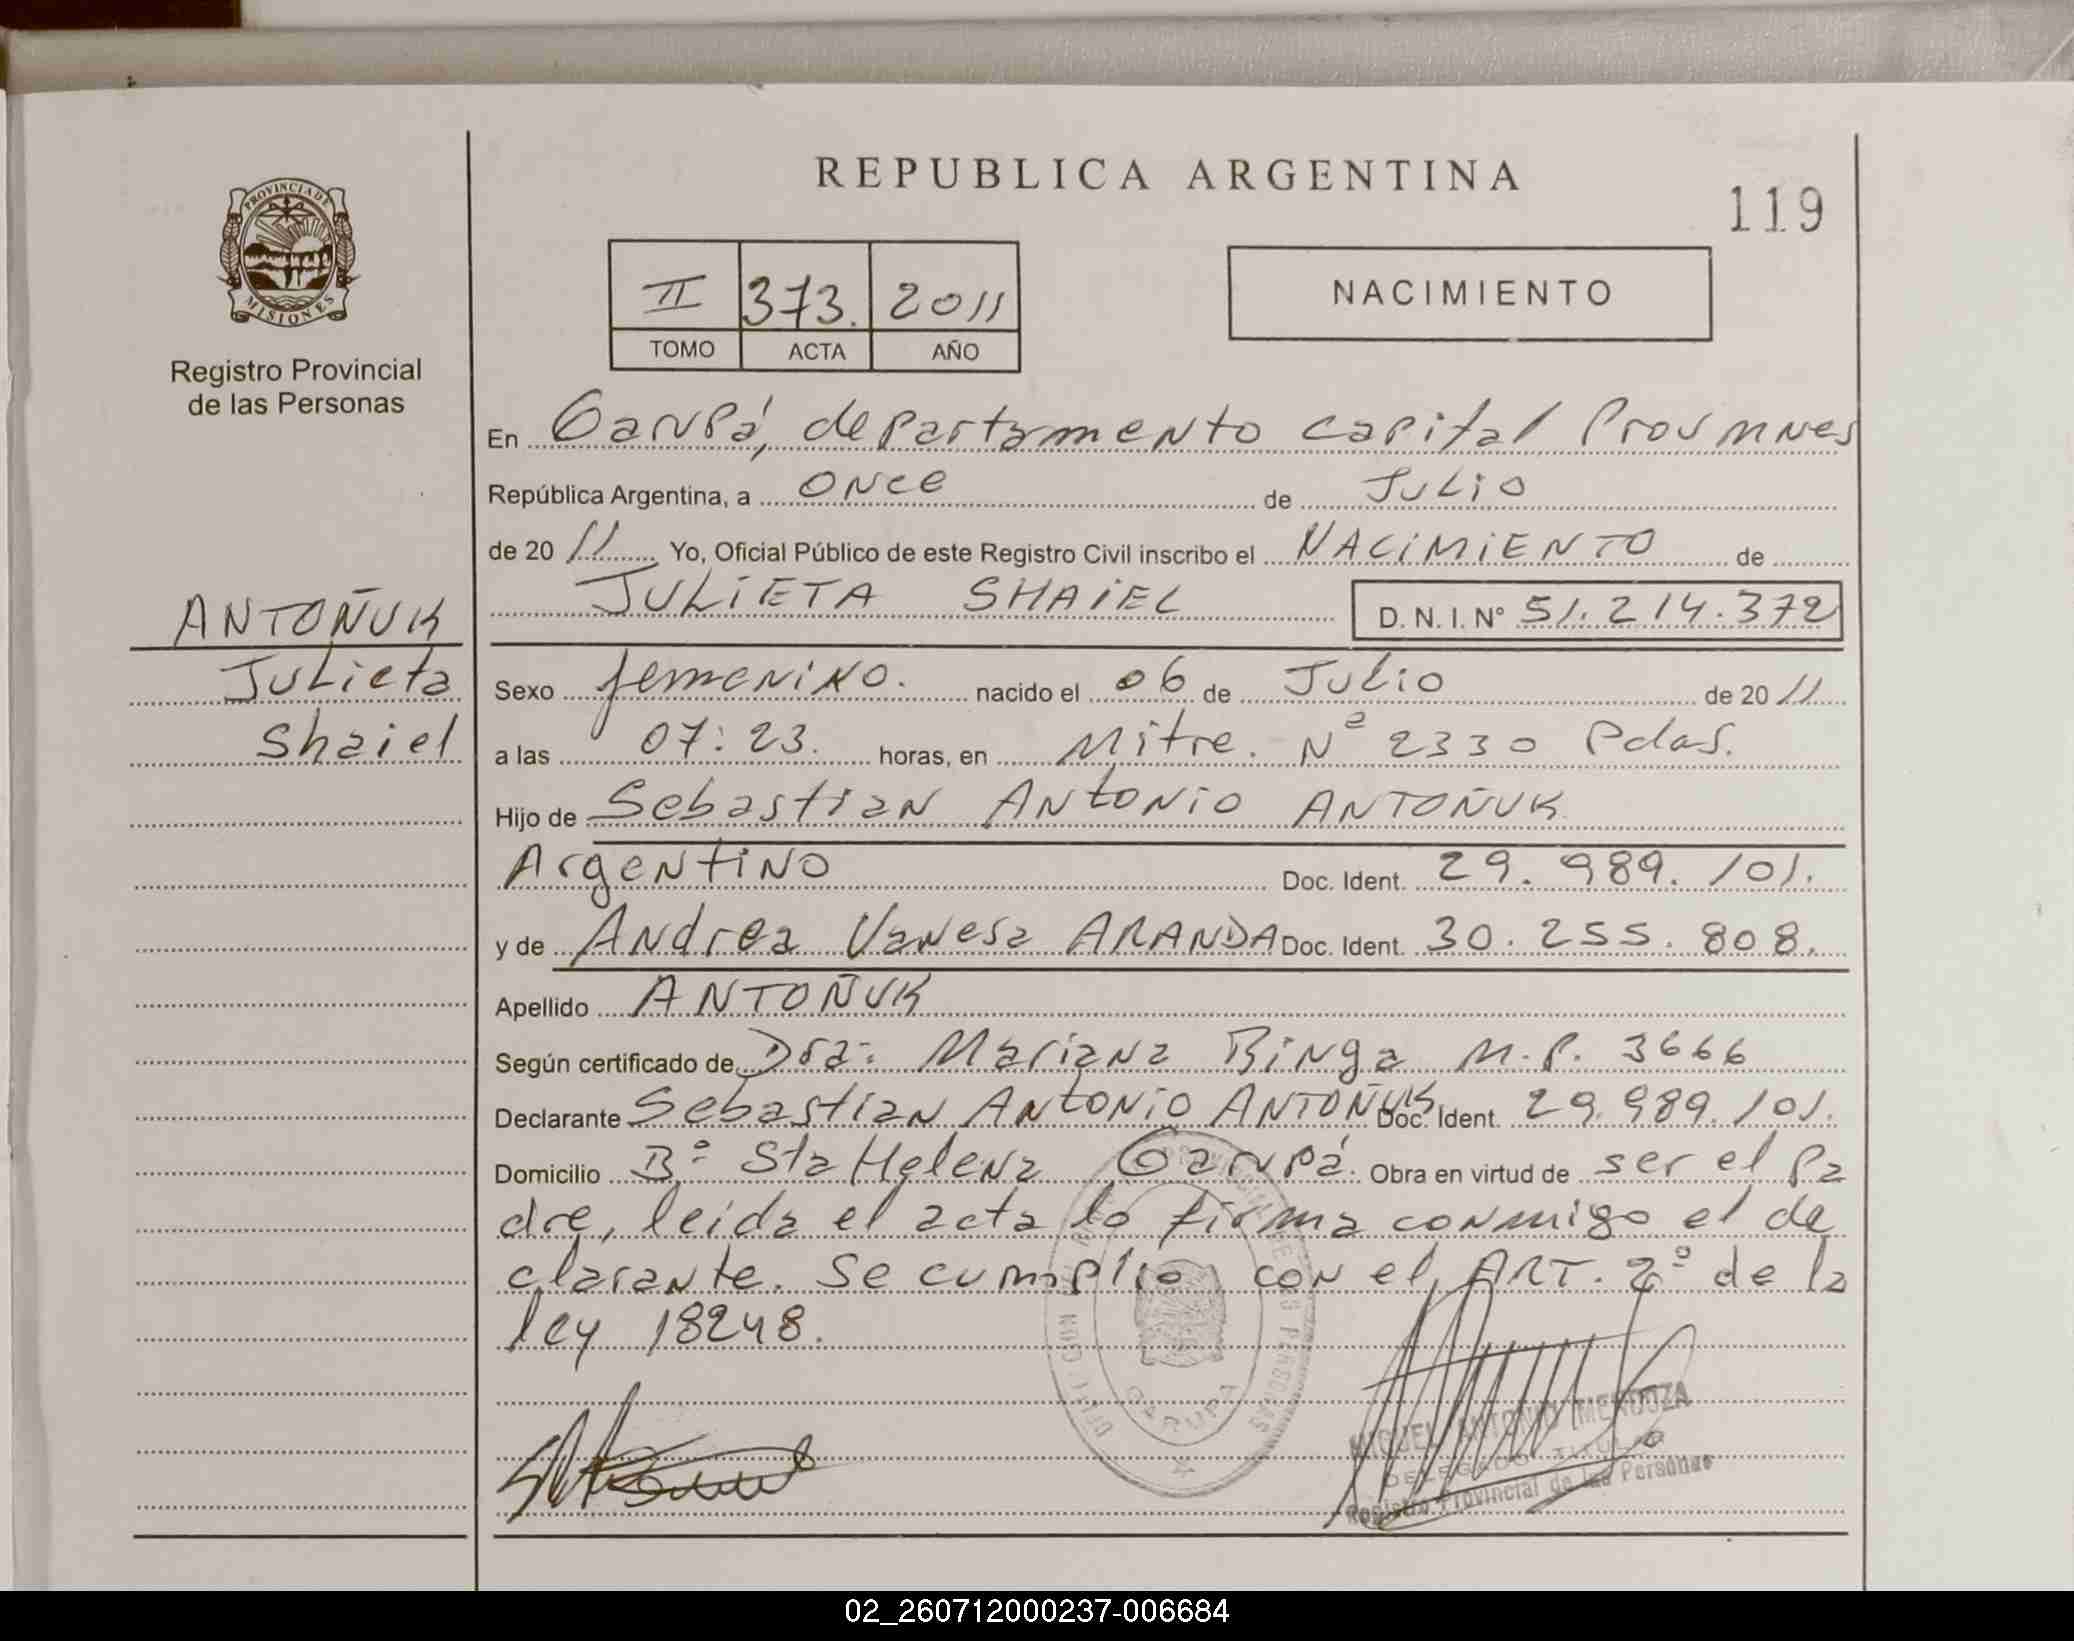 REPUBLICA ARGENTINA
119
PROVINCIA DE
MISIONES
Registro Provincial
de las Personas
II 373. 2011
TOMO ACTA AÑO
NACIMIENTO
En Garupá, departamento capital Prov Mnes
República Argentina, a once de Julio
de 2011 Yo, Oficial Público de este Registro Civil inscribo el NACIMIENTO de
JULIETA SHAIEL D. N. I. Nº 51.214.372
ANTOÑUK
Julieta
Shaiel
Sexo femenino. nacido el 06 de Julio de 2011
a las 07:23. horas, en Mitre. Nº 2330 Pdas.
Hijo de Sebastian Antonio ANTOÑUK
Argentino Doc. Ident. 29.989.101.
y de Andrea Vanesa ARANDA Doc. Ident. 30.255.808.
Apellido ANTOÑUK
Según certificado de Dra: Mariana Binga M.P. 3666
Declarante Sebastian Antonio ANTOÑUK Doc. Ident. 29.989.101.
Domicilio Bº Sta Helena Garupá. Obra en virtud de ser el pa
dre, leida el acta la firma conmigo el de
clarante. Se cumplio con el ART. 2º de la
ley 18248.
GARUPA
MIGUEL ANTONIO MENDOZA
DELEGADO TITULAR
Registro Provincial de las Personas
02_260712000237-006684